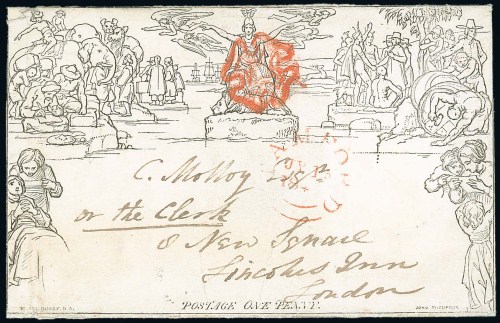 C. Molloy Esqr
or the Clerk
8 New Square
Lincolns Inn
London
POSTAGE ONE PENNY.
W. MULREADY. R.A.
JOHN THOMPSON